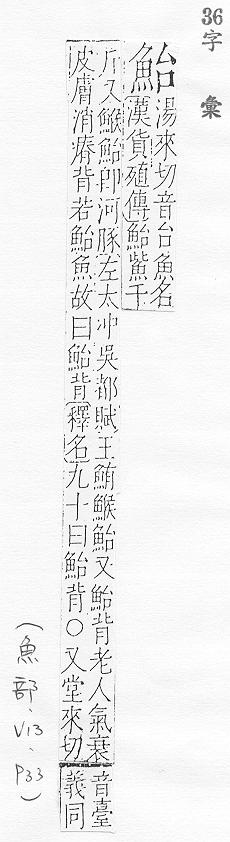 36字 彙
鮐 湯來切音台魚名
漢貨殖傳鮐鮆千
斤又鯸鮐即河豚左太冲吳都賦王鮪鯸鮐又鮐背老人氣衰
皮膚消瘠背若鮐魚故曰鮐背釋名九十曰鮐背○又堂來切
音臺
義同
(魚部、V13、P33)